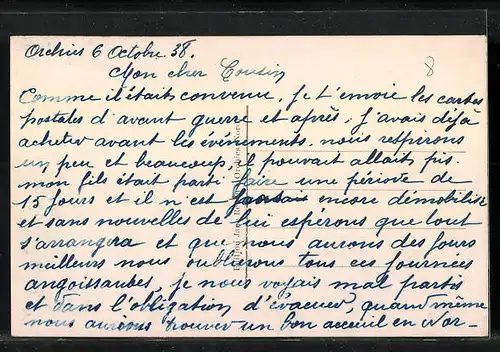 Orchies 6 Octobre 38.
Mon cher Cousin
Comme il était convenue, je t'envoie les cartes
postales d'avant guerre et après, j'avais déjà
acheter avant les événements, nous respirons
un peu et beaucoup, il pouvait allait pis.
mon fils était parti faire une période de
15 jours et il n'est encore démobilisé
et sans nouvelles de lui espérons que tout
s'arrangera et que nous aurons des jours
meilleurs nous oublierons tous ces journées
angoissantes, je nous voyais mal partis
et dans l'obligation d'évacuer, quand même
nous aurions trouver un bon acceuil en Nor-
8